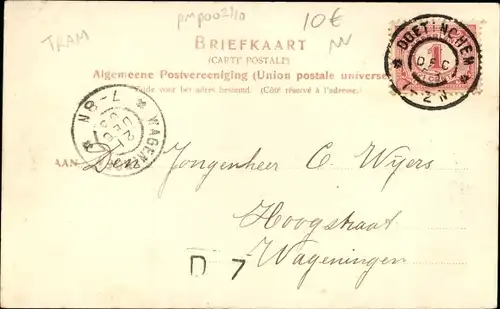 TRAM
pmp002110
10€
BRIEFKAART
(CARTE POSTALE)
Algemeene Postvereeniging (Union postale universe
zijde voor het adres bestemd. (Côté réservé à l'adresse.)
DOETINCHEM
DEC
1-2N
1
WAGEN
7-8N
AAN
Den Jongenheer C. Wijers
Hoogstraat
Wageningen
D 7